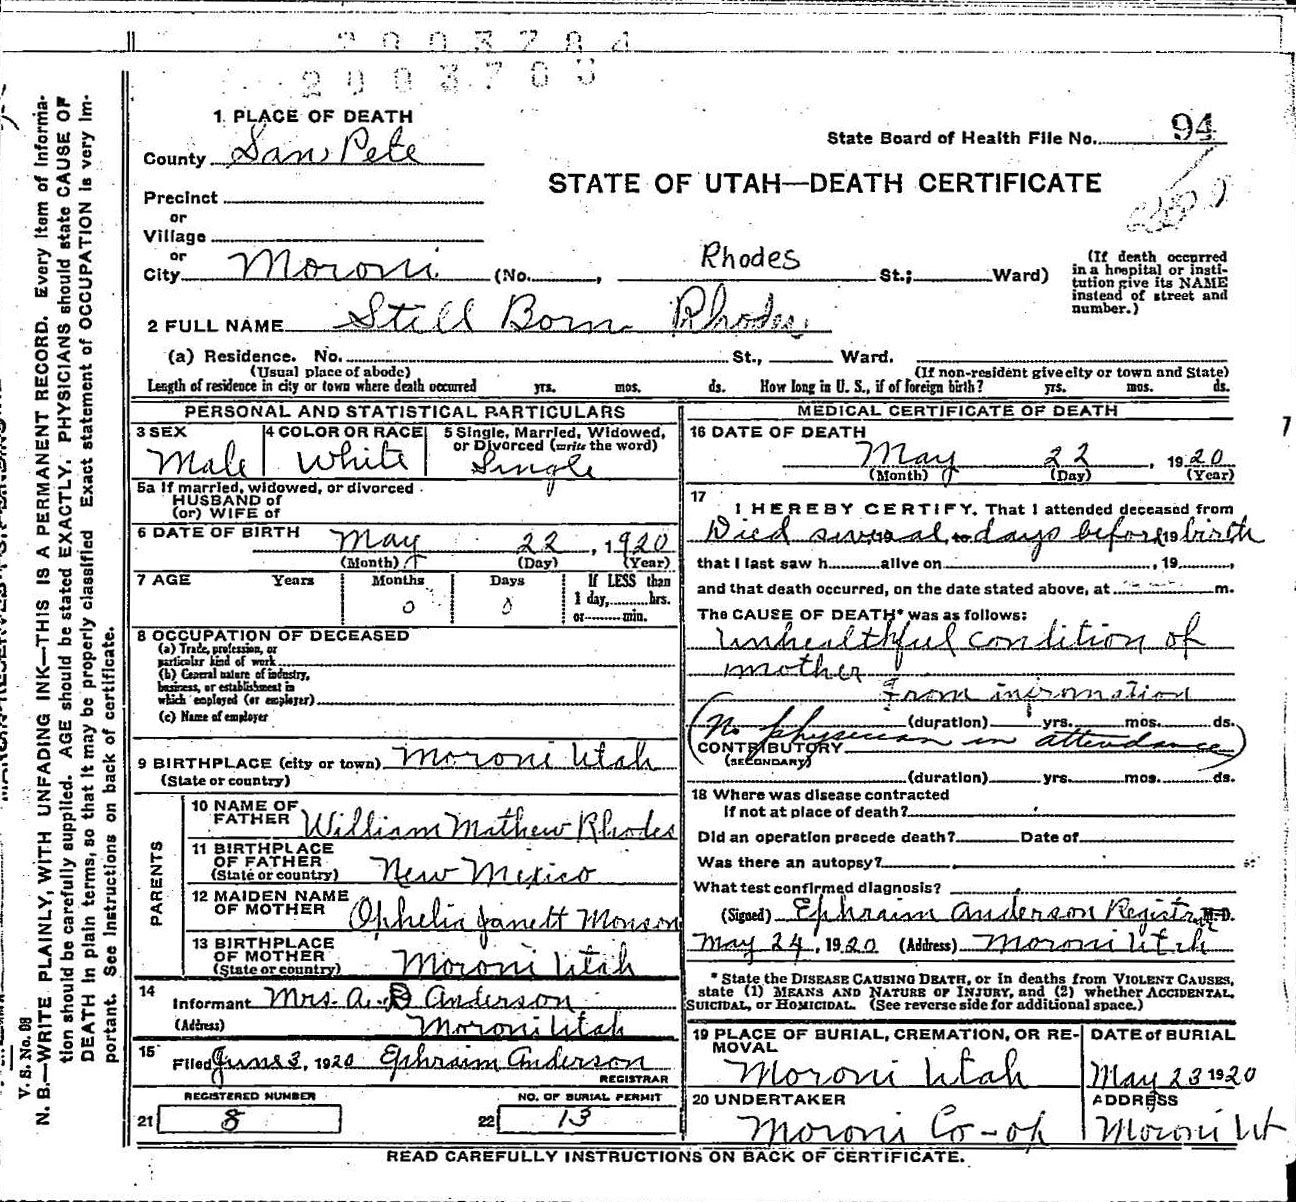 2003784
200370
1 PLACE OF DEATH
County San Pete
State Board of Health File No. 94
STATE OF UTAH—DEATH CERTIFICATE
Precinct
or
Village
or
City Moroni (No. , Rhodes St.; Ward)
(If death occurred in a hospital or institution give its NAME instead of street and number.)
2 FULL NAME Still Born Rhodes
(a) Residence. No. St., Ward.
(Usual place of abode) (If non-resident give city or town and State)
Length of residence in city or town where death occurred yrs. mos. ds. How long in U. S., if of foreign birth? yrs. mos. ds.
PERSONAL AND STATISTICAL PARTICULARS
3 SEX 4 COLOR OR RACE 5 Single, Married, Widowed, or Divorced (write the word)
Male White Single
5a If married, widowed, or divorced
HUSBAND of
(or) WIFE of
6 DATE OF BIRTH May 22, 1920
(Month) (Day) (Year)
7 AGE Years Months Days If LESS than
0 0 1 day, hrs.
or min.
8 OCCUPATION OF DECEASED
(a) Trade, profession, or
particular kind of work
(b) General nature of industry,
business, or establishment in
which employed (or employer)
(c) Name of employer
9 BIRTHPLACE (city or town) Moroni Utah
(State or country)
PARENTS
10 NAME OF FATHER William Mathew Rhodes
11 BIRTHPLACE OF FATHER (State or country) New Mexico
12 MAIDEN NAME OF MOTHER Ophelia Janett Monson
13 BIRTHPLACE OF MOTHER (State or country) Moroni Utah
14 Informant Mrs. A. D Anderson
(Address) Moroni Utah
15 Filed June 3, 1920 Ephraim Anderson
REGISTRAR
REGISTERED NUMBER NO. OF BURIAL PERMIT
21 8 22 13
MEDICAL CERTIFICATE OF DEATH
16 DATE OF DEATH
May 22, 1920
(Month) (Day) (Year)
17 I HEREBY CERTIFY, That I attended deceased from
Died several to days before 19 birth
that I last saw h alive on , 19 ,
and that death occurred, on the date stated above, at m.
The CAUSE OF DEATH* was as follows:
Unhealthful condition of
mother
From infromation
(duration) yrs. mos. ds.
No physician in attendance
CONTRIBUTORY
(SECONDARY)
(duration) yrs. mos. ds.
18 Where was disease contracted
if not at place of death?
Did an operation precede death? Date of
Was there an autopsy?
What test confirmed diagnosis?
(Signed) Ephraim Anderson Registrar M.D.
May 24, 1920 (Address) Moroni Utah
*State the DISEASE CAUSING DEATH, or in deaths from VIOLENT CAUSES,
state (1) MEANS AND NATURE OF INJURY, and (2) whether ACCIDENTAL,
SUICIDAL, or HOMICIDAL. (See reverse side for additional space.)
19 PLACE OF BURIAL, CREMATION, OR REMOVAL DATE of BURIAL
Moroni Utah May 23 1920
20 UNDERTAKER ADDRESS
Moroni Co-op Moroni Ut
READ CAREFULLY INSTRUCTIONS ON BACK OF CERTIFICATE.
V. S. No. 98
N. B.—WRITE PLAINLY, WITH UNFADING INK—THIS IS A PERMANENT RECORD. Every item of informa-
tion should be carefully supplied. AGE should be stated EXACTLY. PHYSICIANS should state CAUSE OF
DEATH in plain terms, so that it may be properly classified Exact statement of OCCUPATION is very im-
portant. See instructions on back of certificate.